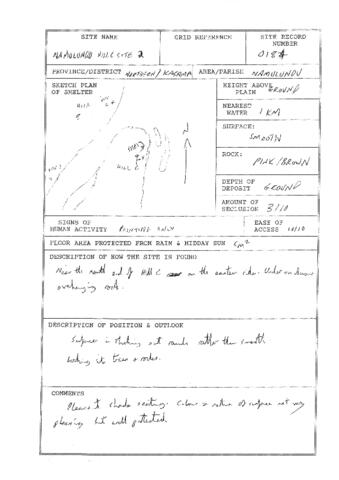 SITE NAME
GRID REFERENCE
SITE RECORD NUMBER
NAMULUNGU HILL SITE 2
0184
PROVINCE/DISTRICT
AREA/PARISH NAMULUNDU
SKETCH PLAN OF SHELTER
HEIGHT ABOVE PLAIN GROUND
NEAREST WATER 1 KM
SURFACE: SMOOTH
ROCK: PINK/BROWN
DEPTH OF DEPOSIT GROUND
AMOUNT OF SECLUSION 3/10
HILL
N
HILL C
SIGNS OF HUMAN ACTIVITY PAINTINGS ONLY
EASE OF ACCESS 10/10
FLOOR AREA PROTECTED FROM RAIN & MIDDAY SUN 6m²
DESCRIPTION OF HOW THE SITE IS FOUND
Near the south end of Hill C on the eastern side. Under an
overhanging rock.
DESCRIPTION OF POSITION & OUTLOOK
Surface is rather than smooth.
Looking into trees & rocks.
COMMENTS
Pleasant shade seating. Colour & nature of surface not very
pleasing but well protected.